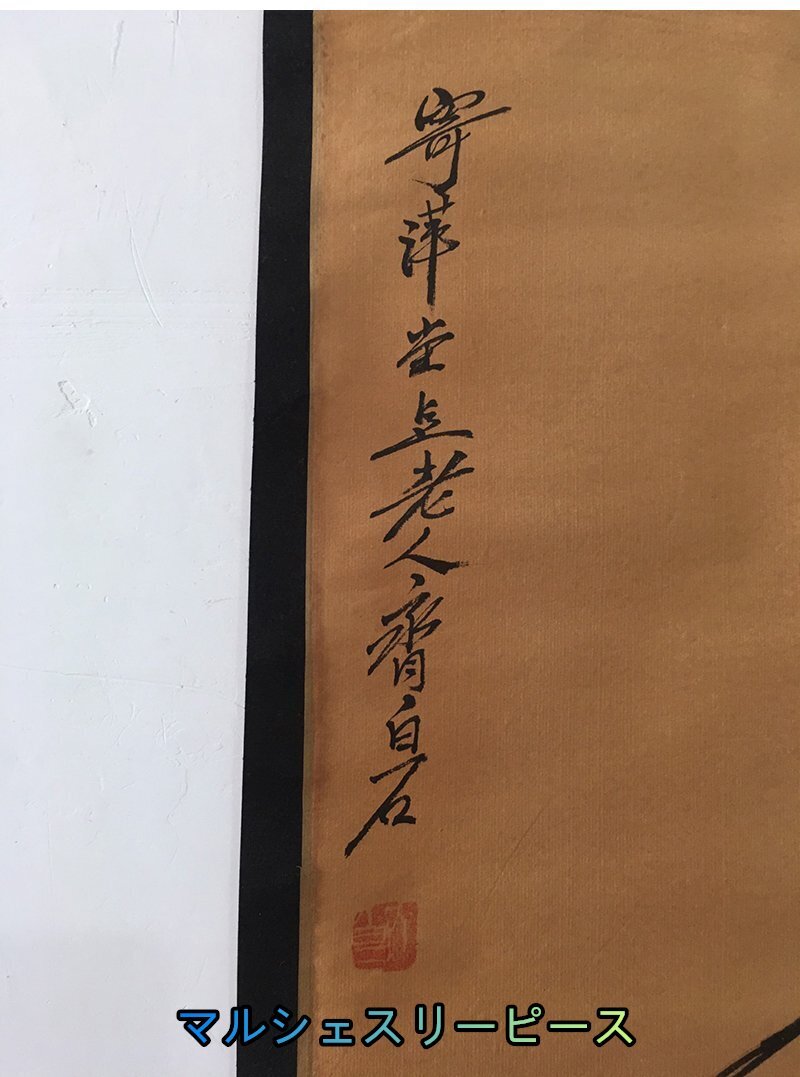 寄萍堂上老人齊白石
マルシェスリーピース